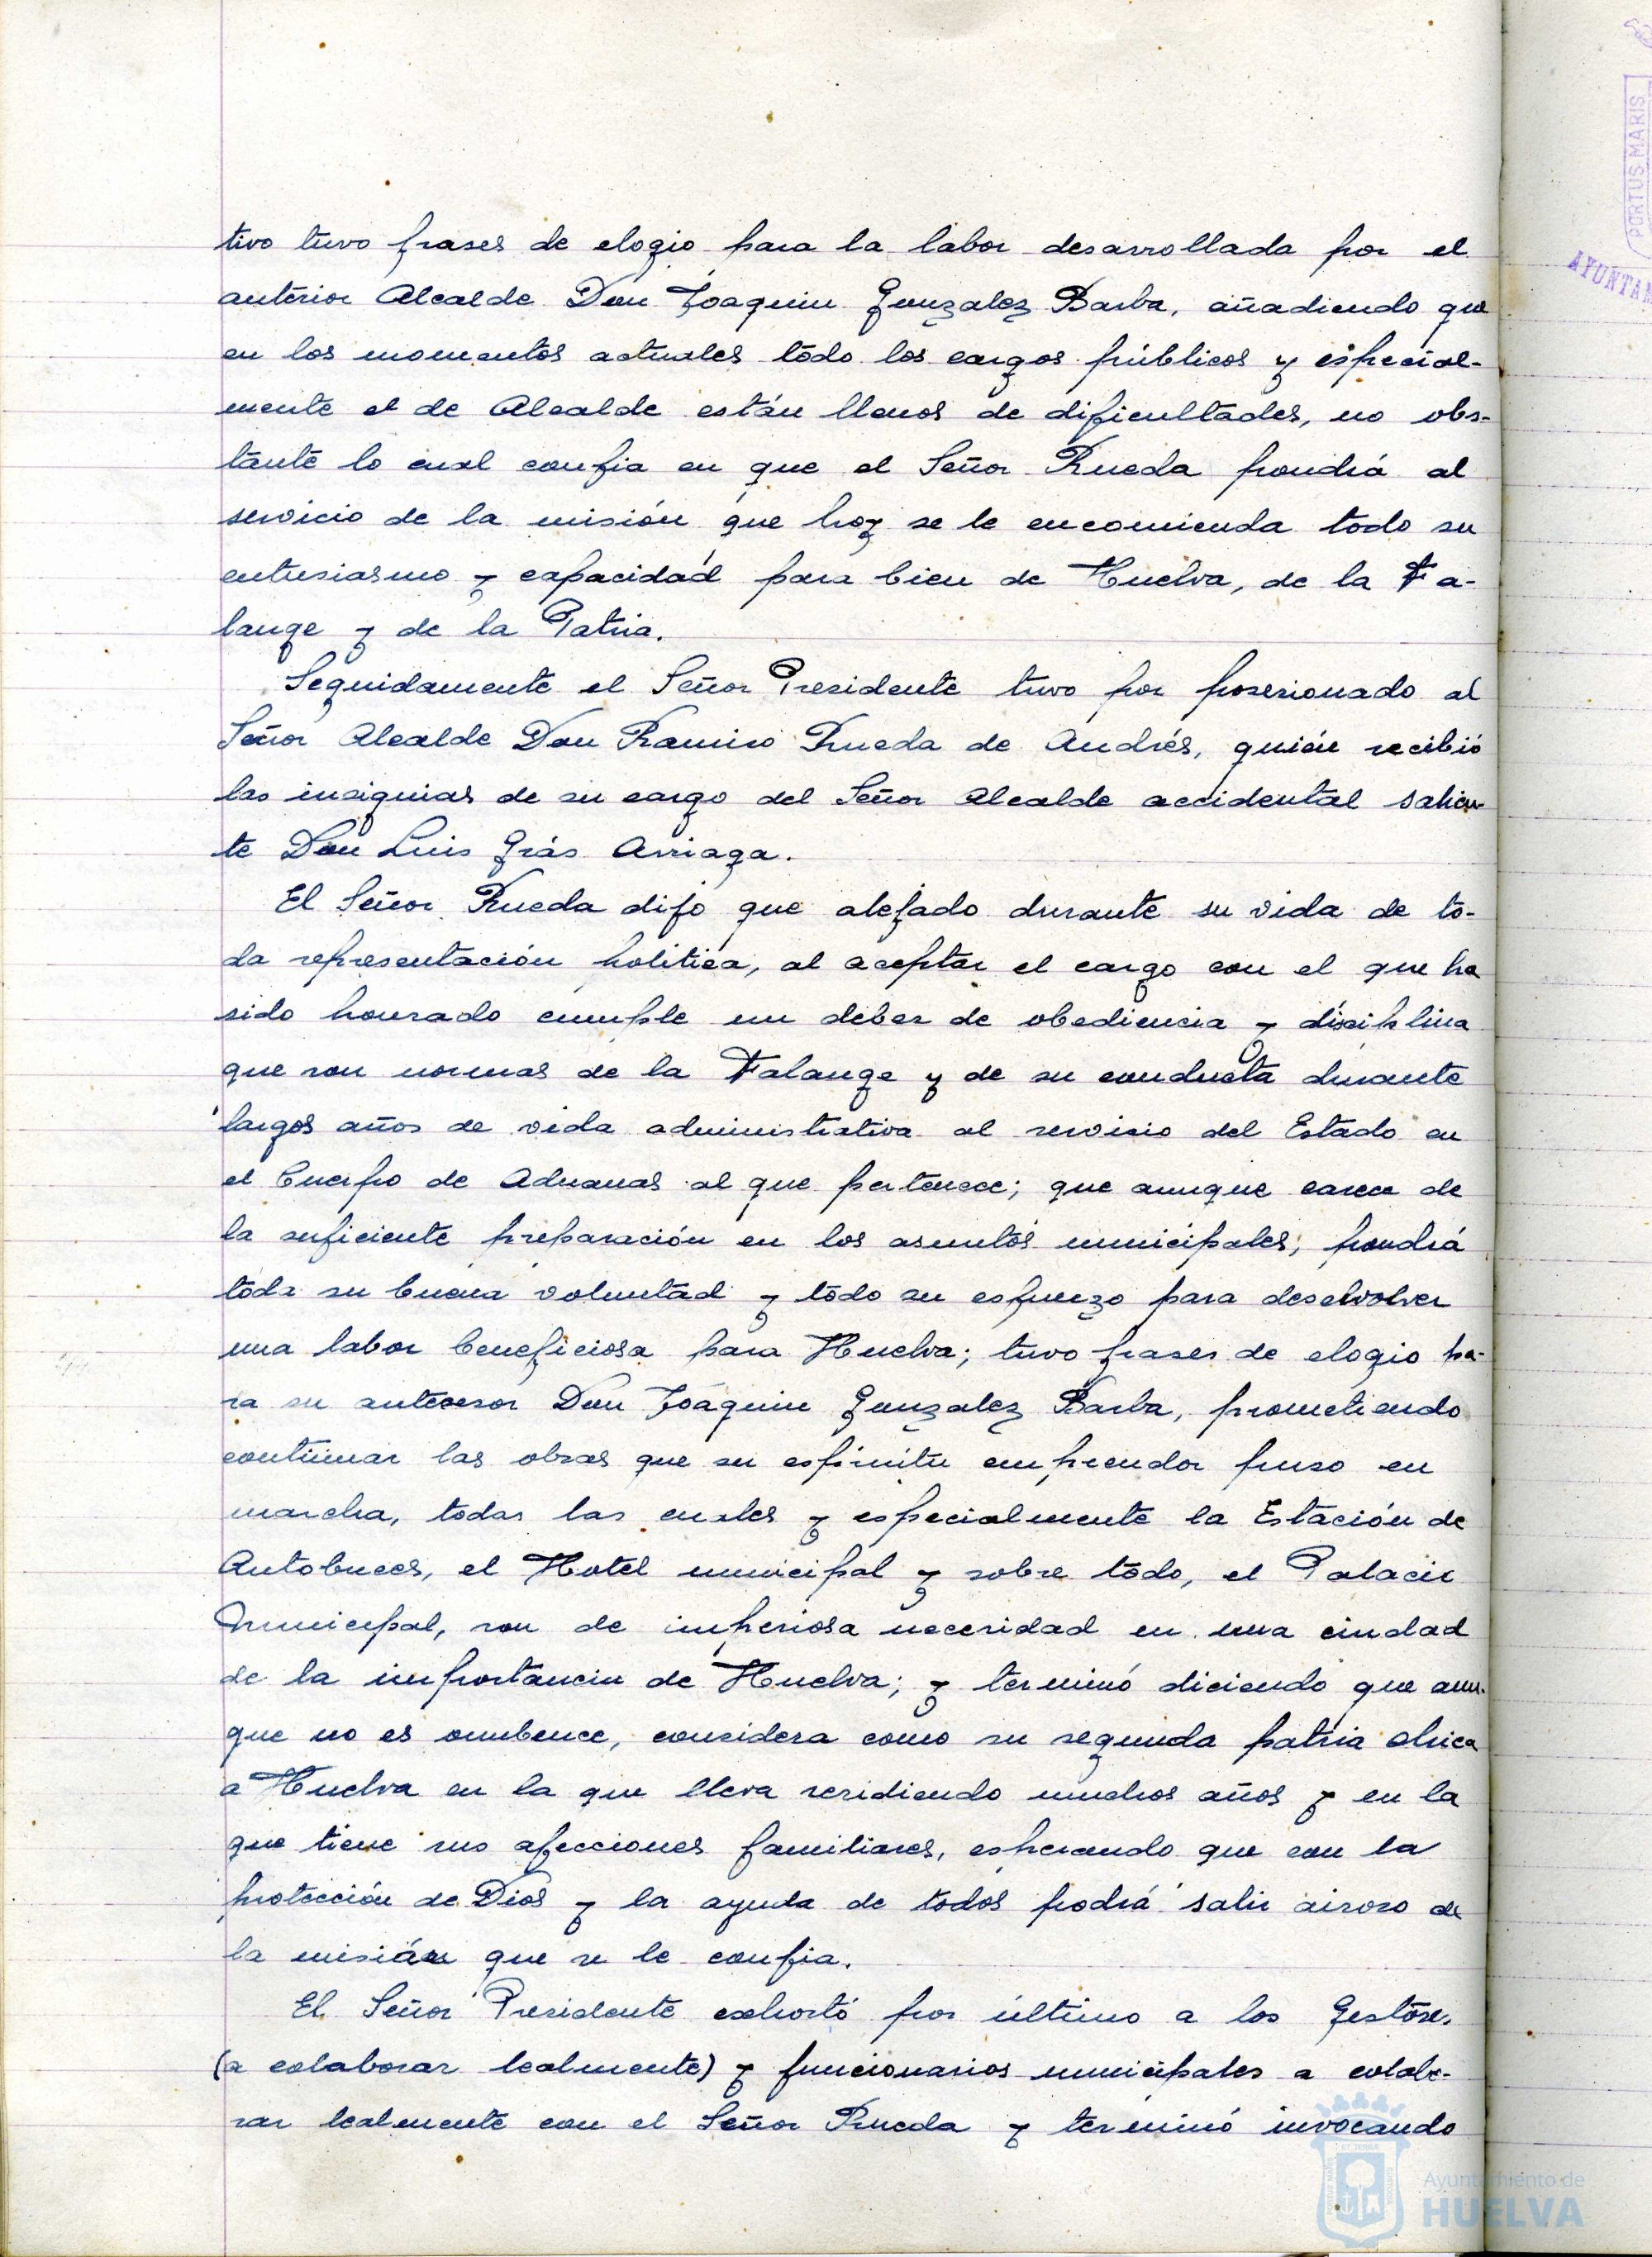 tivo tuvo frases de elogio para la labor desarrollada por el
anterior Alcalde Don Joaquin Gonzalez Barba, añadiendo que
en los momentos actuales todo los cargos públicos y especial-
mente el de Alcalde están llenos de dificultades, no obs-
tante lo cual confia en que el Señor Rueda pondrá al
servicio de la misión que hoy se le encomienda todo su
entusiasmo y capacidad para bien de Huelva, de la Fa-
lange y de la Patria.
Seguidamente el Señor Presidente tuvo por posesionado al
Señor Alcalde Don Ramiro Rueda de Andrés, quién recibió
las insignias de su cargo del Señor Alcalde accidental salien-
te Don Luis Grás Arriaga.
El Señor Rueda dijo que alejado durante su vida de to-
da representación politica, al aceptar el cargo con el que ha
sido honrado cumple un deber de obediencia y disciplina
que son normas de la Falange y de su conducta durante
largos años de vida administrativa al servicio del Estado en
el Cuerpo de Aduanas al que pertenece; que aunque carece de
la suficiente preparación en los asuntos municipales, pondrá
toda su buena voluntad y todo su esfuerzo para desenvolver
una labor beneficiosa para Huelva; tuvo frases de elogio pa-
ra su antecesor Don Joaquin Gonzalez Barba, prometiendo
continuar las obras que su espiritu emprendor puso en
marcha, todas las cuales y especialmente la Estación de
Autobuces, el Hotel municipal y sobre todo, el Palacio
Municipal, son de imperiosa necesidad en una ciudad
de la importancia de Huelva; y terminó diciendo que aun-
que no es onubence, considera como su segunda patria chica
a Huelva en la que lleva residiendo muchos años y en la
que tiene sus afecciones familiares, esperando que con la
protección de Dios y la ayuda de todos podrá salir airoso de
la misión que se le confia.
El Señor Presidente exhortó por último a los Gestores
(a colaborar lealmente) y funcionarios municipales a colabo-
rar lealmente con el Señor Rueda y terminó invocando
PORTUS MARIS
Ayuntamiento de
HUELVA